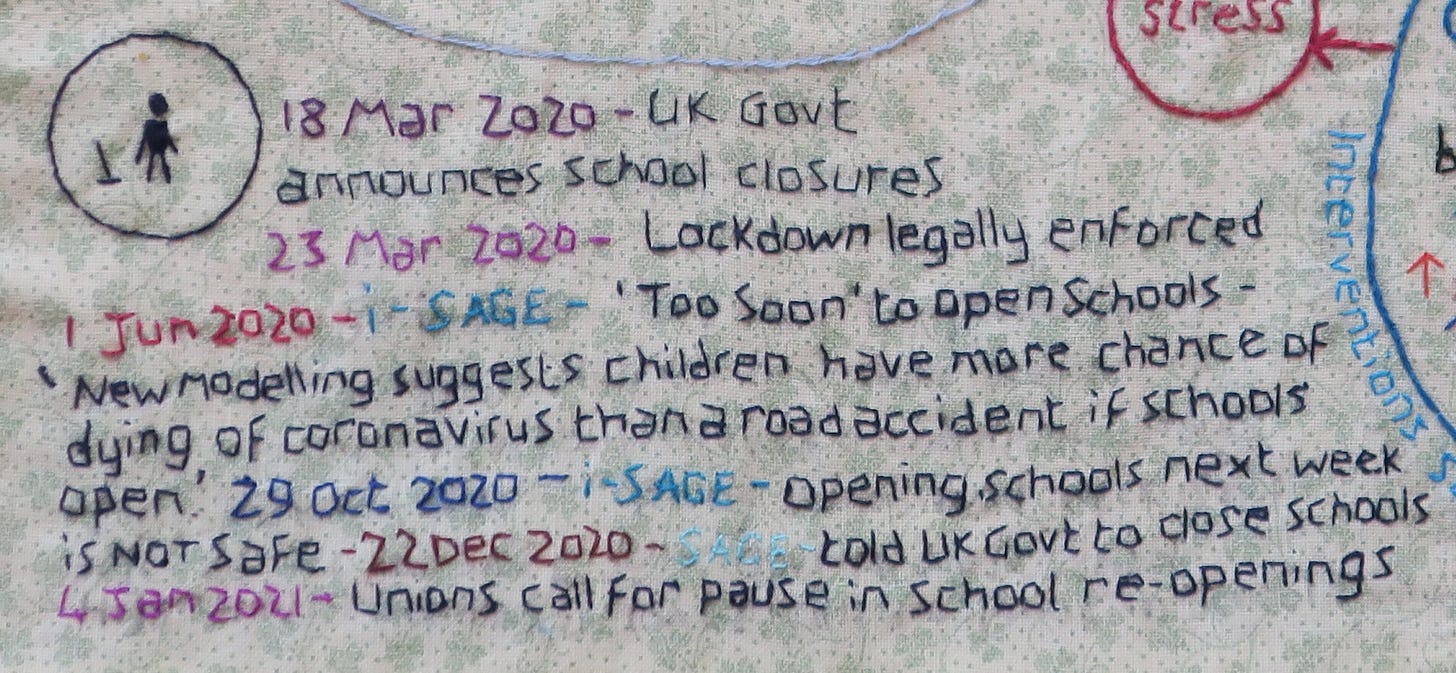 stress
1
18 Mar 2020 - UK Govt
announces school closures
23 Mar 2020 - Lockdown legally enforced
1 Jun 2020 - i-SAGE - 'Too Soon' to open Schools -
'New modelling suggests children have more chance of
dying of coronavirus than a road accident if schools
open.' 29 Oct 2020 - i-SAGE - opening schools next week
is NOT Safe - 22 Dec 2020 - SAGE - told UK Govt to close schools
4 Jan 2021 - Unions call for pause in school re-openings
Interventions